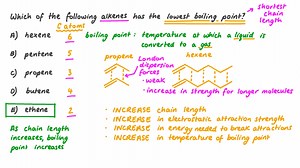 Which of the following alkenes has the lowest boiling point?
shortest chain length
C atoms
A) hexene 6
B) pentene 5
C) propene 3
D) butene 4
E) ethene 2
As chain length increases, boiling point increases
boiling point: temperature at which a liquid is converted to a gas
propene
London dispersion forces
• weak
hexene
• increase in strength for longer molecules
• INCREASE in chain length
• INCREASE in electrostatic attraction strength
• INCREASE in energy needed to break attractions
• INCREASE in temperature of boiling point